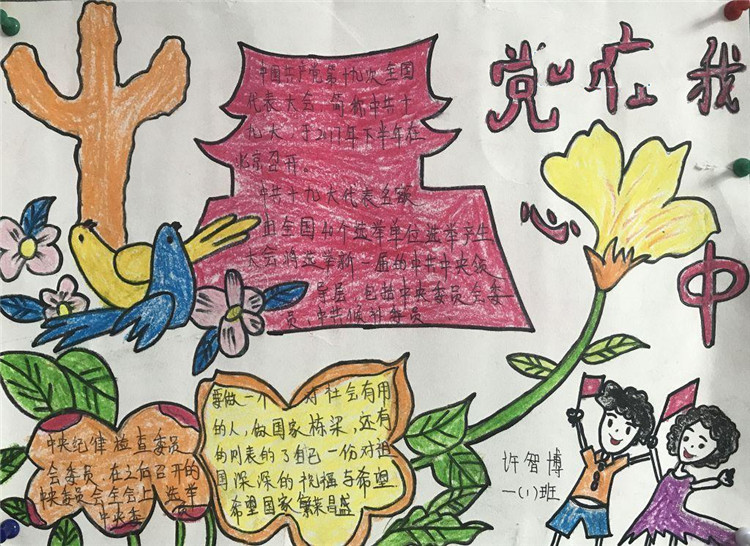 党在我心中
中国共产党第十九次全国
代表大会，简称中共十
九大，于2017年下半年在
北京召开。
中共十九大代表名额
由全国40个选举单位选举产生
大会将选举新一届的中共中央领
导层，包括中央委员会委
员 中共候补委员
中央纪律检查委员
会委员，在之后召开的
中央委员会全会上，选举
中央委
要做一个 对社会有用
的人，做国家栋梁，还有
的则表的了自己一份对祖
国深深的祝福与希望
希望国家繁荣昌盛。
许智博
一(1)班